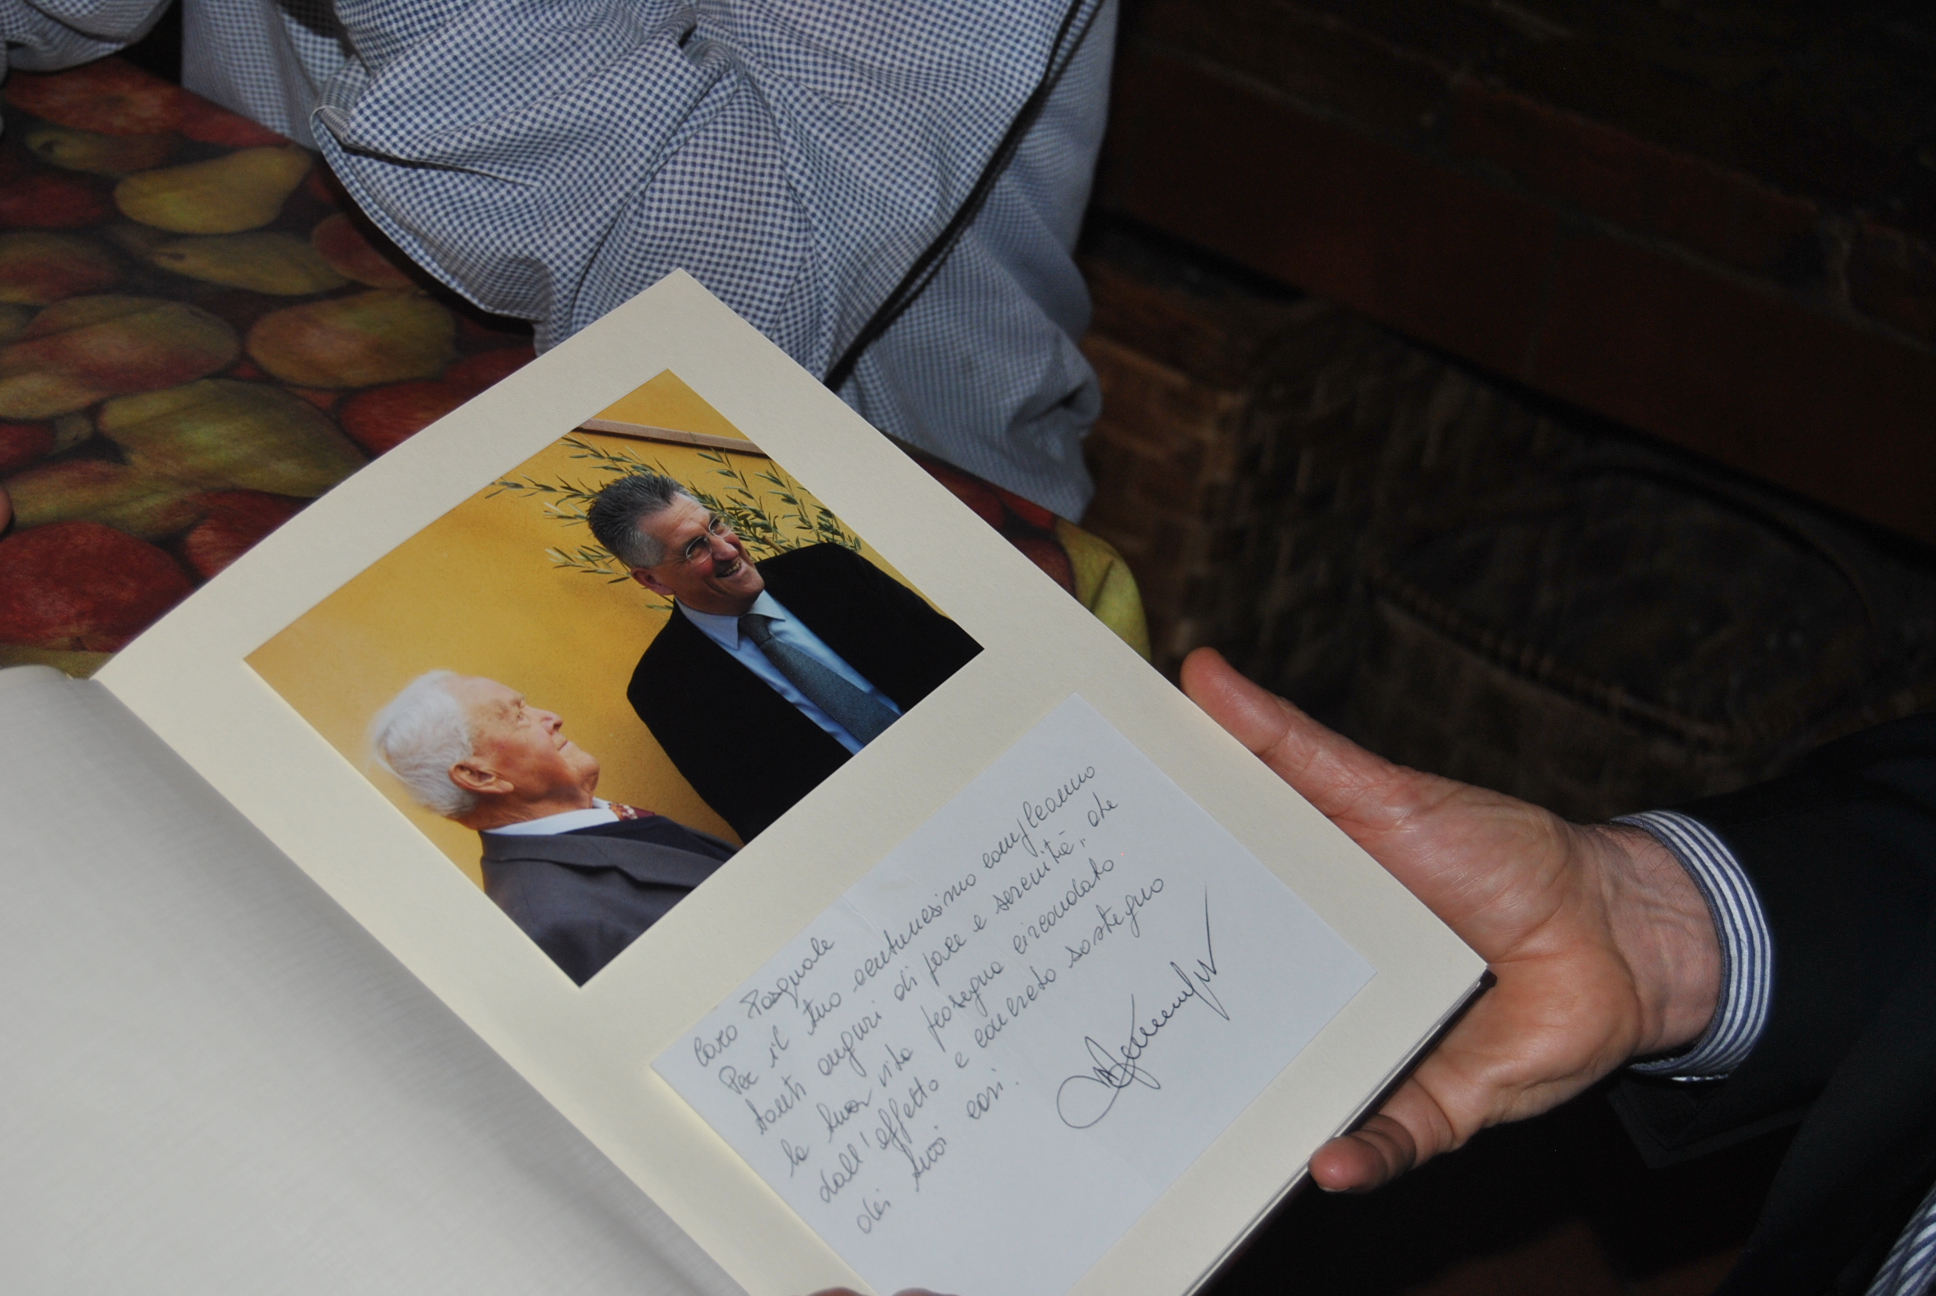 Caro Pasquale
Per il tuo centunesimo compleanno
tanti auguri di pace e serenità, che
la tua vita prosegua circondato
dall'affetto e concreto sostegno
dei tuoi cari.